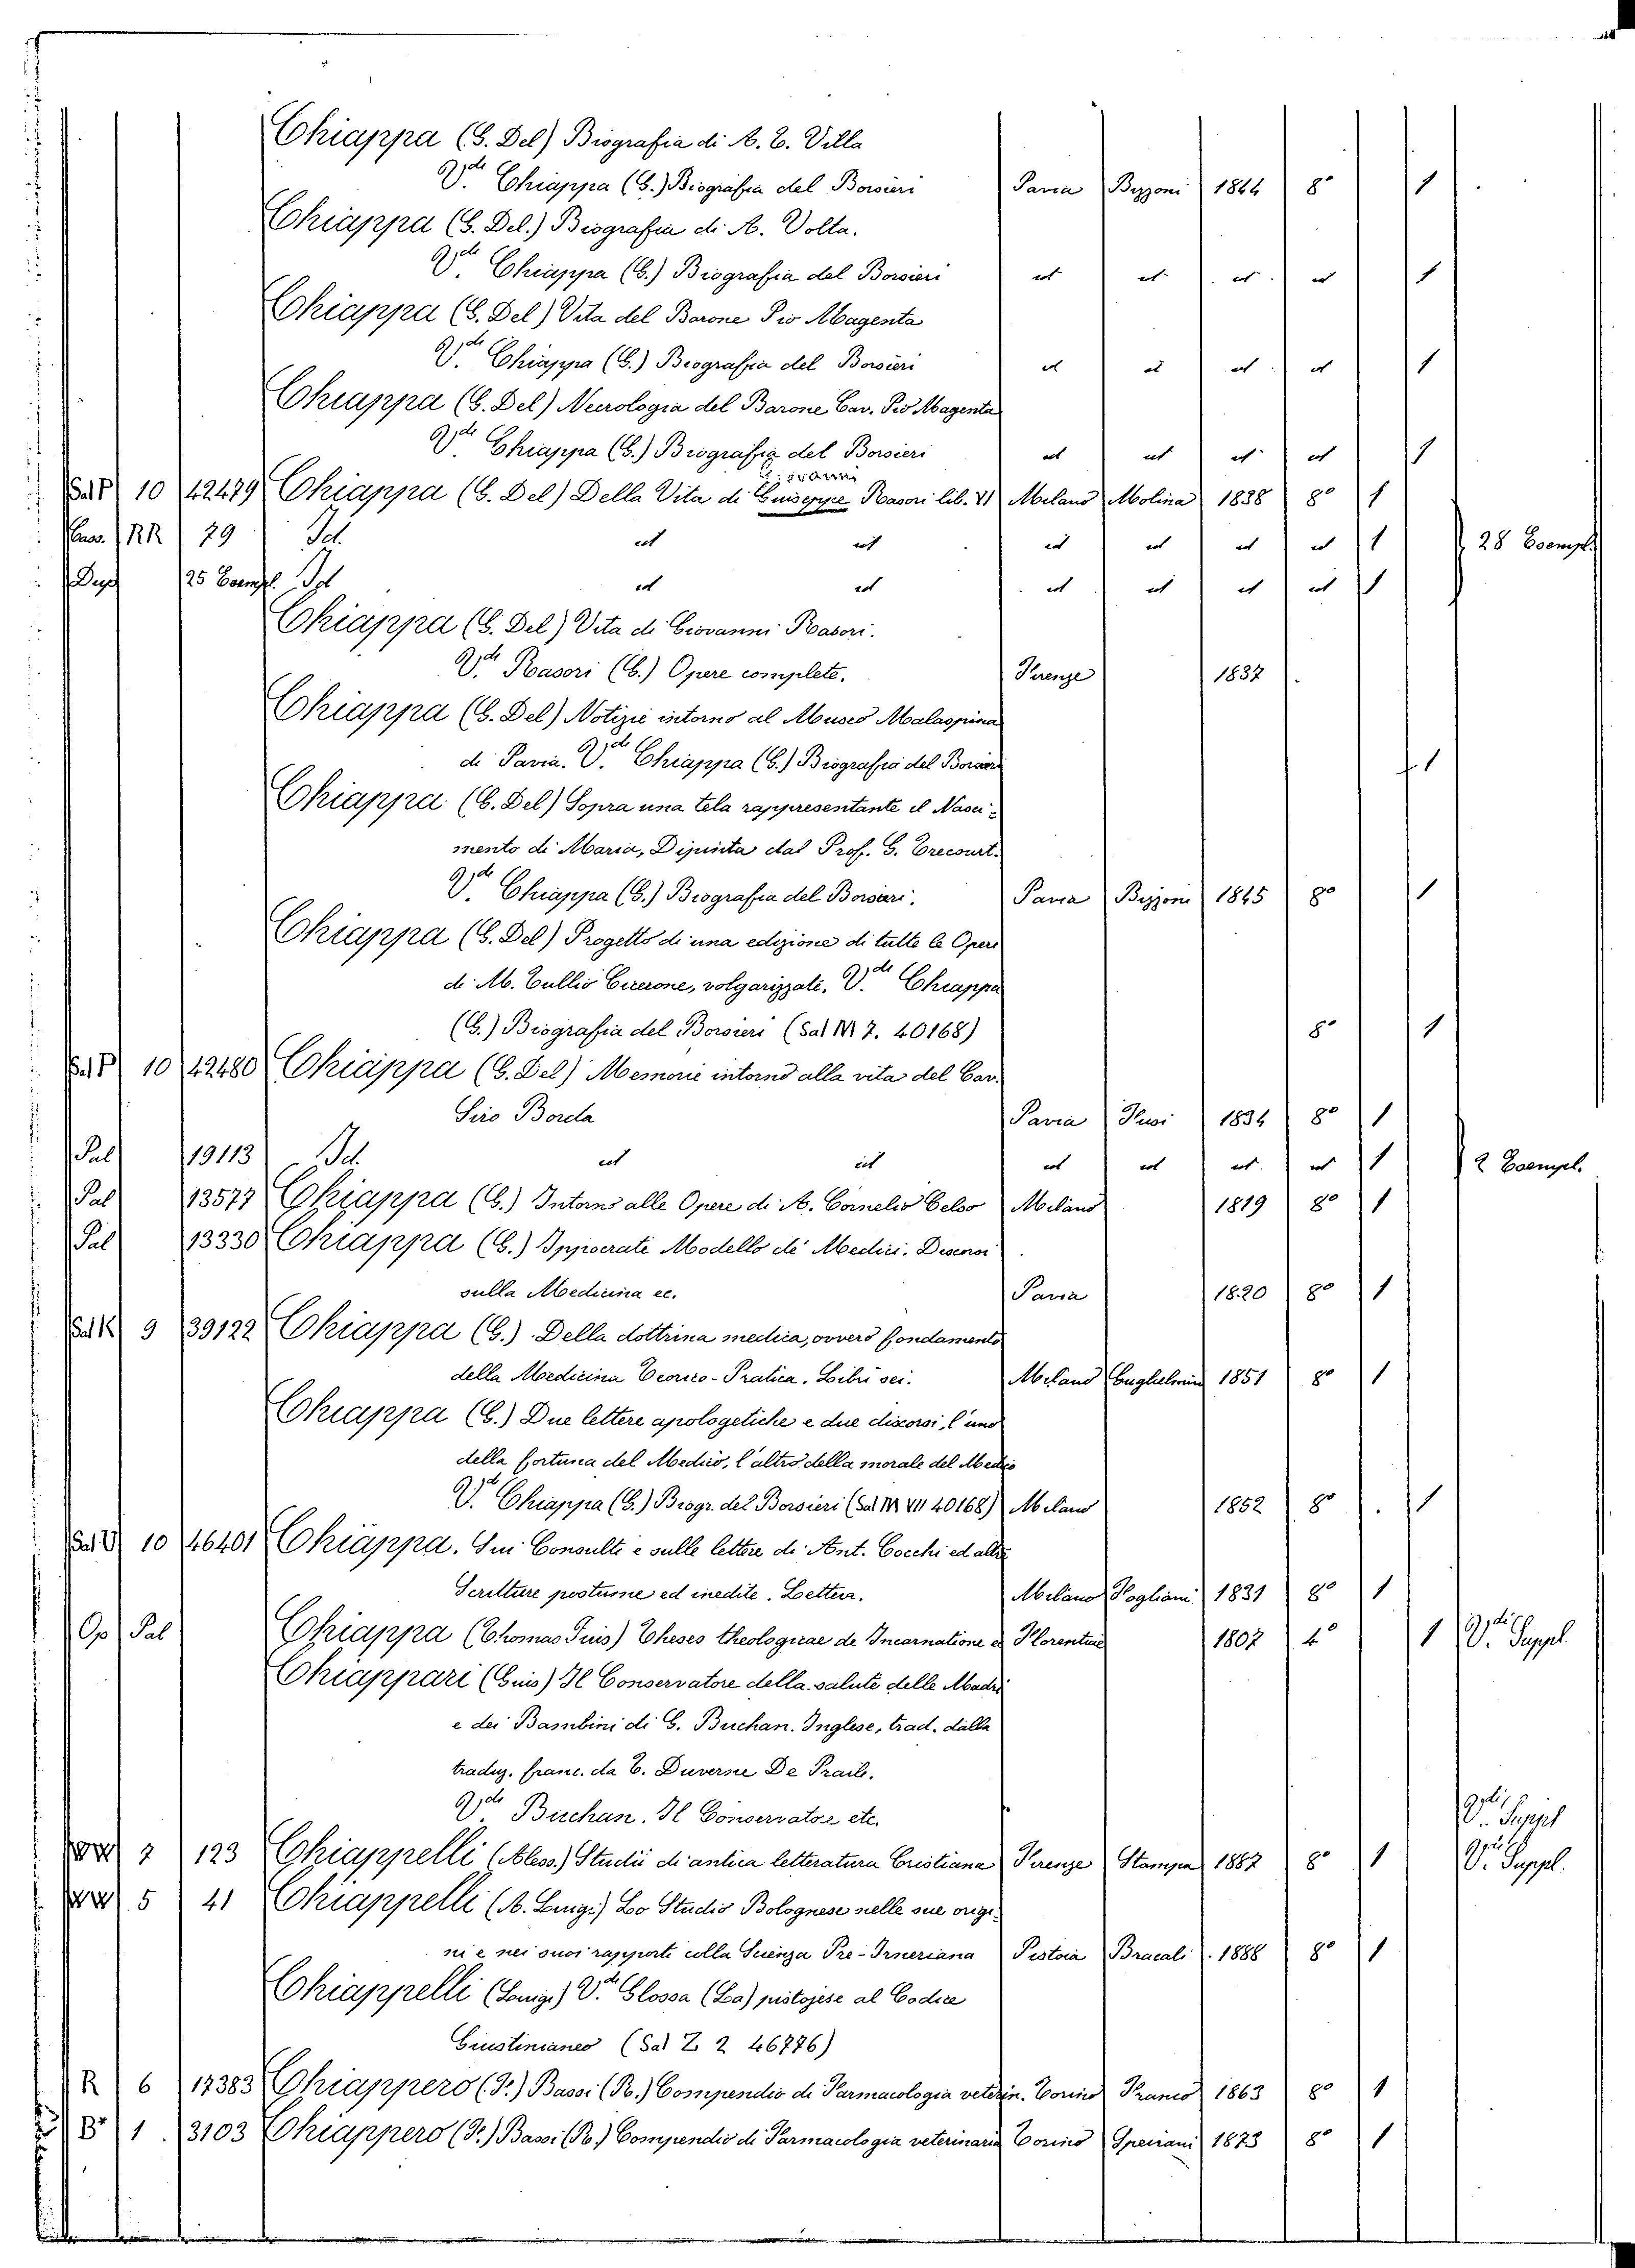 Chiappa (G. Del) Biografia di A. T. Villa
V.di Chiappa (G.) Biografia del Borsieri Pavia Bizzoni 1844 8° 1
Chiappa (G. Del.) Biografia di A. Volta.
V.di Chiappa (G.) Biografia del Borsieri ut ut ut ut 1
Chiappa (G. Del) Vita del Barone Pio Magenta
V.di Chiappa (G.) Biografia del Borsieri ut ut ut ut 1
Chiappa (G. Del) Necrologia del Barone Cav. Pio Magenta
V.di Chiappa (G.) Biografia del Borsieri ut ut ut ut 1
Giovanni
Sal P 10 42479 Chiappa (G. Del) Della Vita di Giuseppe Rasori lib. VI Milano Molina 1838 8° 1
RR 29 Id. ut ut ut ut ut ut 1 28 Esempl.
Dup 25 Esempl. Id ut ut ut ut ut ut 1
Chiappa (G. Del) Vita di Giovanni Rasori.
V.di Rasori (G.) Opere complete. Firenze 1837
Chiappa (G. Del) Notizie intorno al Museo Malaspina
di Pavia. V.di Chiappa (G.) Biografia del Borsieri 1
Chiappa (G. Del) Sopra una tela rappresentante il Nasci-
mento di Maria, Dipinta dal Prof. G. Trecourt.
V.di Chiappa (G.) Biografia del Borsieri. Pavia Bizzoni 1845 8° 1
Chiappa (G. Del) Progetto di una edizione di tutte le Opere
di M. Tullio Cicerone, volgarizzate. V.di Chiappa
(G.) Biografia del Borsieri (Sal M 7. 40168) 8° 1
Sal P 10 42480 Chiappa (G. Del) Memorie intorno alla vita del Cav.
Siro Borda Pavia Fusi 1834 8° 1
Pal 19113 Id. ut ut ut ut ut ut 1 2 Esempl.
Pal 13577 Chiappa (G.) Intorno alle Opere di A. Cornelio Celso Milano 1819 8° 1
Pal 13330 Chiappa (G.) Ippocrate Modello de' Medici. Discorsi
sulla Medicina ec. Pavia 1820 8° 1
Sal K 9 39122 Chiappa (G.) Della dottrina medica, ovvero fondamento
della Medicina Teorico-Pratica. Libri sei. Milano Guglielmini 1851 8° 1
Chiappa (G.) Due lettere apologetiche e due discorsi, l'uno
della fortuna del Medico, l'altro della morale del Medico
V.di Chiappa (G.) Biogr. del Borsieri (Sal M VII 40168) Milano 1852 8° 1
Sal V 10 46401 Chiappa. Sui Consulti e sulle lettere di Ant. Cocchi ed altre
Scritture postume ed inedite. Lettera. Milano Pogliani 1831 8° 1
Op Pal Chiappa (Thomas Pius) Theses theologicae de Incarnatione Florentiae 1807 4° 1 V.di Suppl.
Chiappari (Gius) Il Conservatore della salute delle Madri
e dei Bambini di G. Buchan. Inglese, trad. dalla
traduz. franc. da T. Duverne De Praile.
V.di Buchan. Il Conservatore etc. V.di Suppl
2 123 Chiappelli (Aless.) Studii di antica letteratura Cristiana Firenze Stampa 1887 8° 1 V.di Suppl.
5 41 Chiappelli (A. Luigi) Lo Studio Bolognese nelle sue origi-
ni e nei suoi rapporti colla Scienza Pre-Irneriana Pistoia Bracali 1888 8° 1
Chiappelli (Luigi) V.di Glossa (La) pistojese al Codice
Giustinianeo (Sal Z 2 46776)
R 6 17383 Chiappero (F.) Bassi (R.) Compendio di Farmacologia veterin. Torino Franco 1863 8° 1
B° 1 3103 Chiappero (F.) Bassi (R.) Compendio di Farmacologia veterinaria Torino Speirani 1873 8° 1